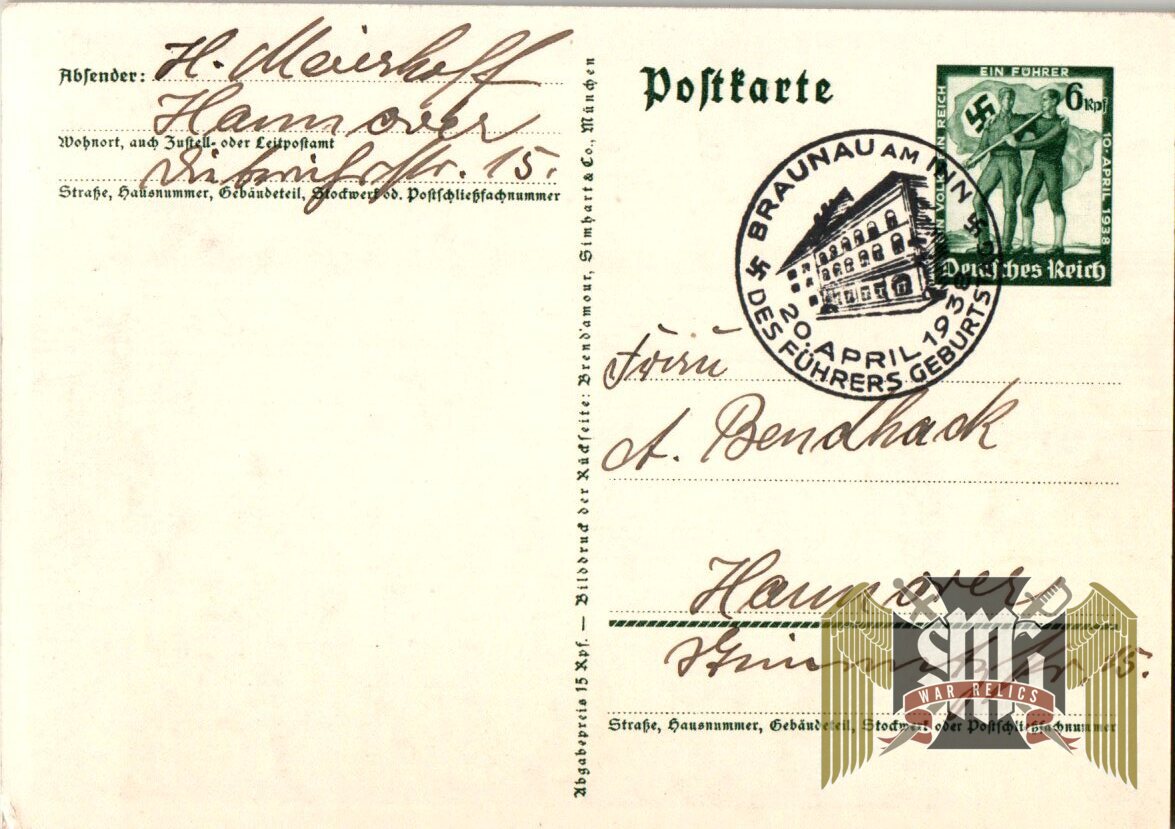 Absender: H. Meierhoff
Hannover
Wohnort, auch Zustell- oder Leitpostamt
str. 15.
Straße, Hausnummer, Gebäudeteil, Stockwerk od. Postschließfachnummer
Abgabepreis 15 Rpf. — Bilddruck der Rückseite: Brend'amour, Simhart & Co., München
Postkarte
EIN VOLK EIN REICH
EIN FÜHRER
10. APRIL 1938
6 Rpf
Deutsches Reich
BRAUNAU AM INN
20. APRIL 1938
DES FÜHRERS GEBURTSTAG
Frau
A. Bendhack
Hannover
str. 15.
Straße, Hausnummer, Gebäudeteil, Stockwerk oder Postschließfachnummer
SMG
WAR RELICS